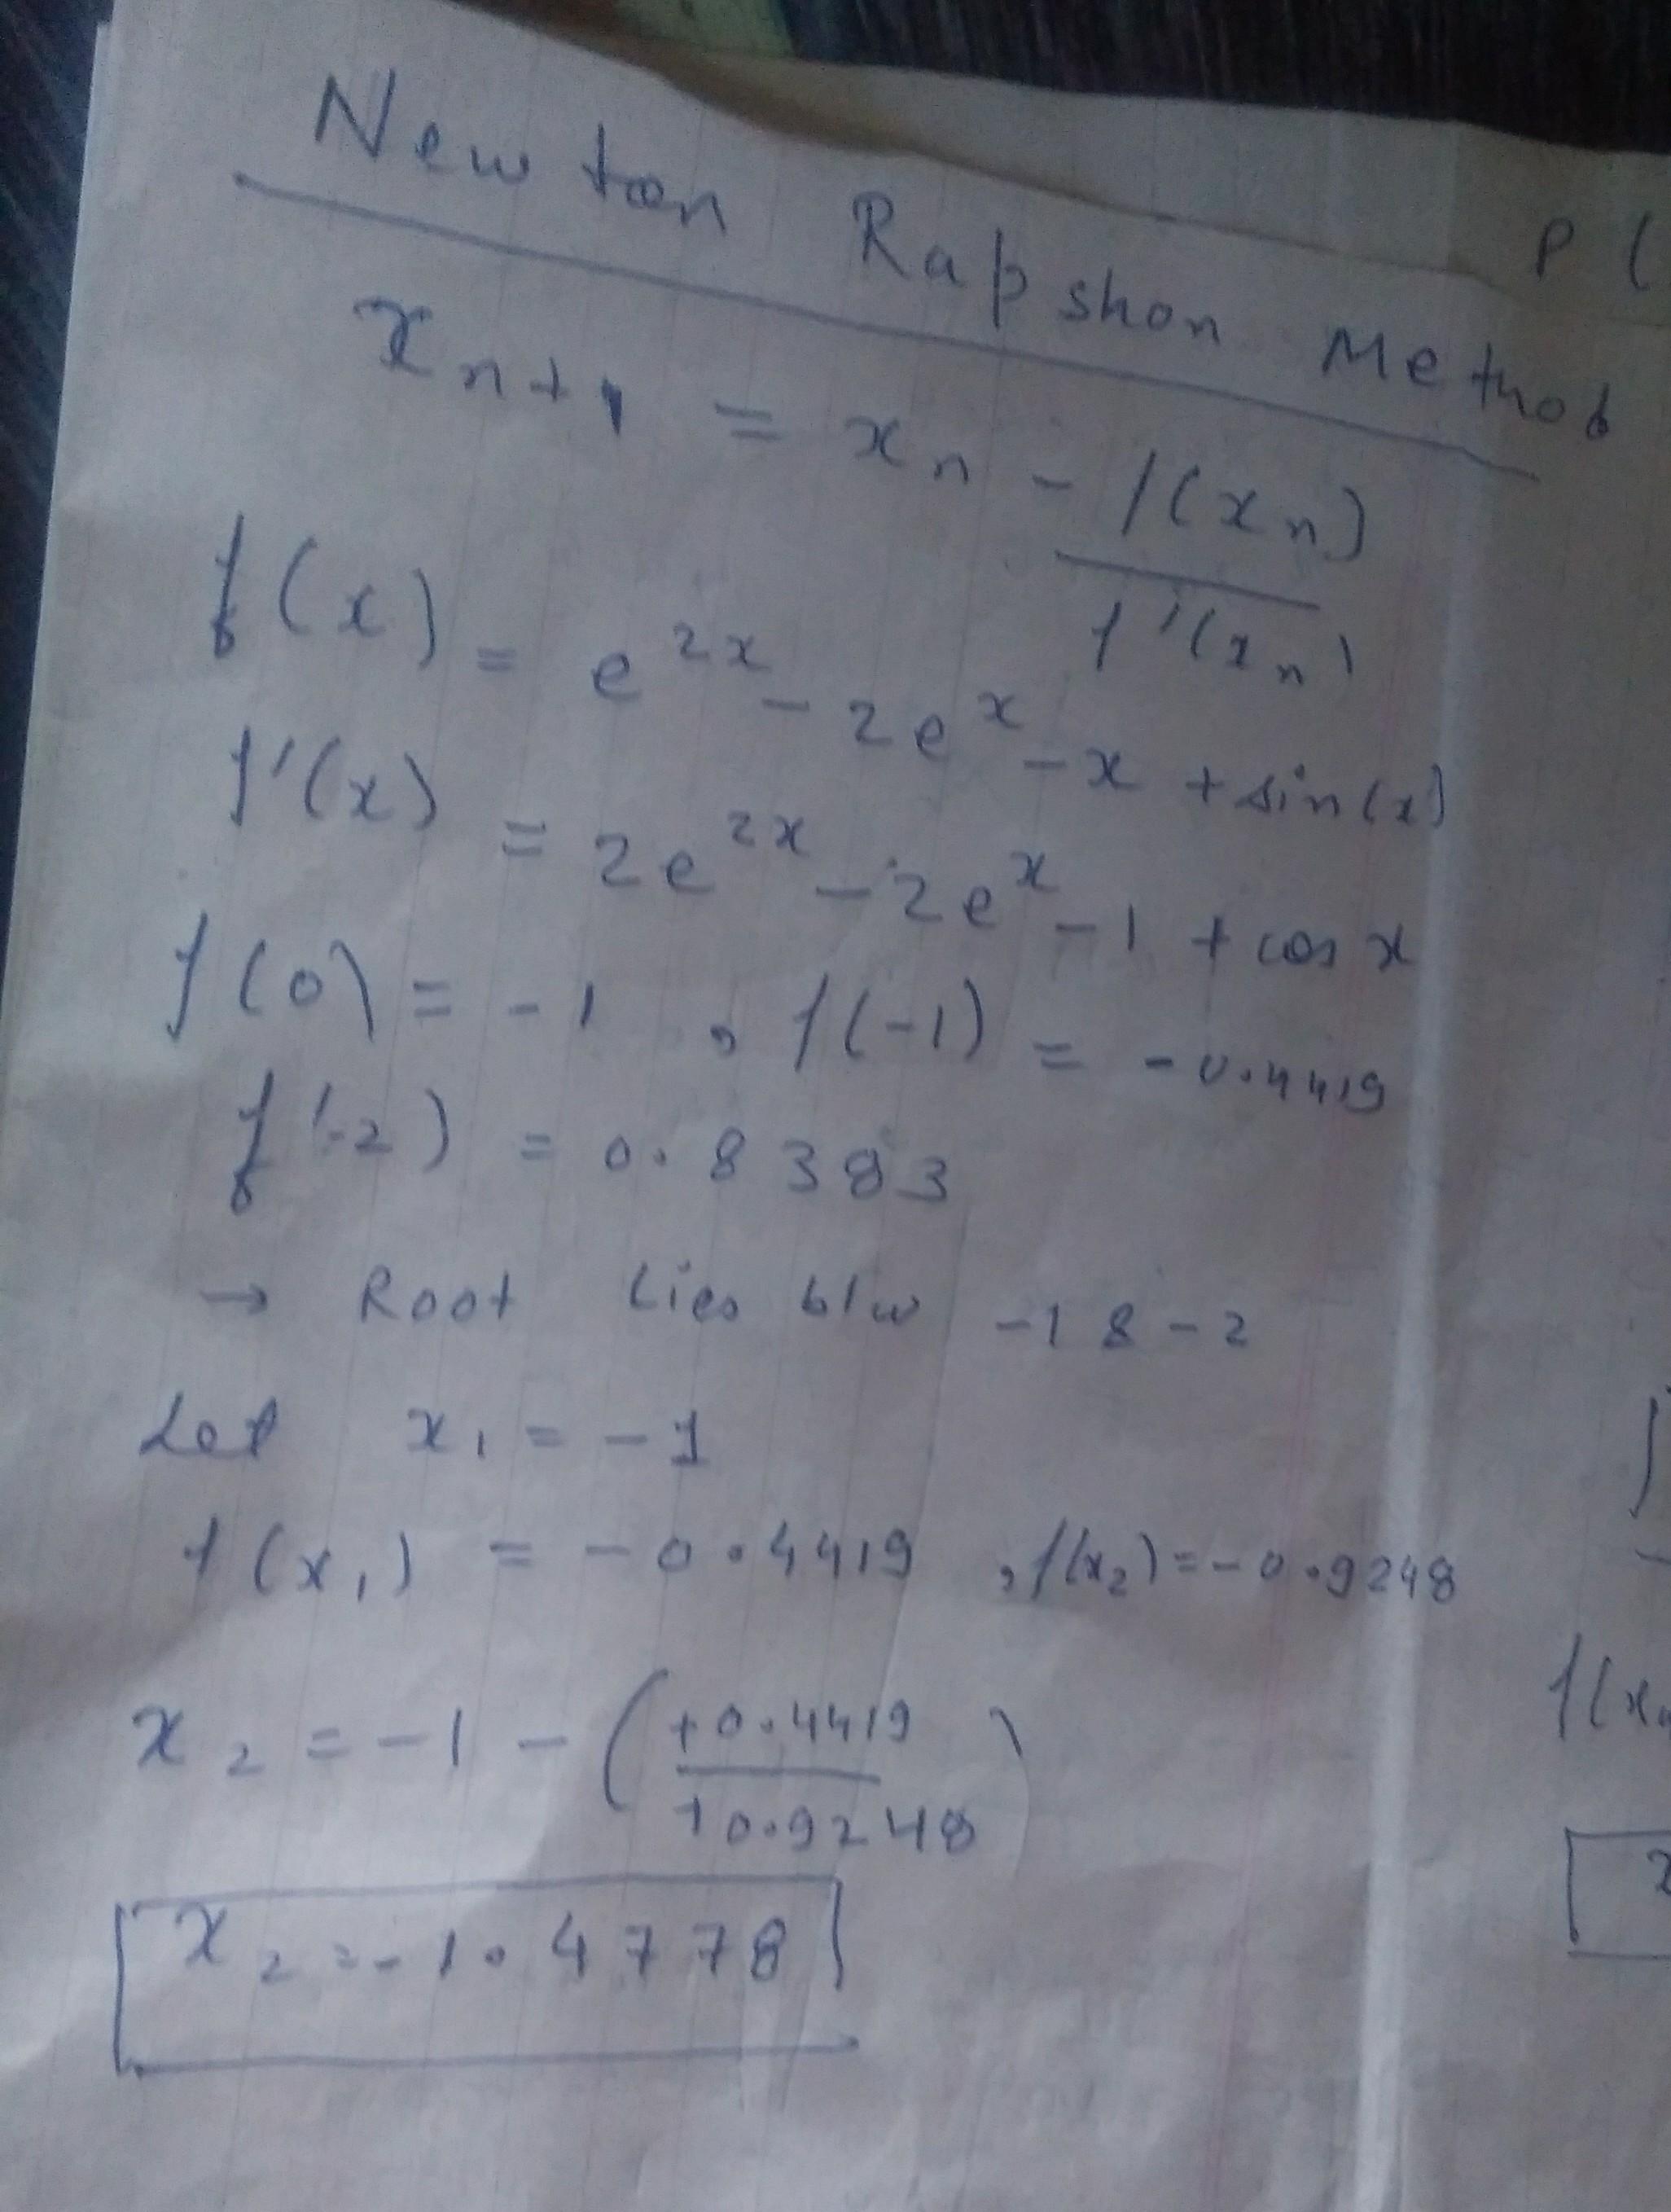 Newton Rapshon Method
P (
xn+1 = xn - f(xn) / f'(xn)
f(x) = e^2x - 2e^x - x + sin(x)
f'(x) = 2e^2x - 2e^x - 1 + cos x
f(0) = -1 , f(-1) = -0.4419
f(-2) = 0.8383
→ Root lies b/w -1 & -2
Let x1 = -1
f(x1) = -0.4419 , f(x2) = -0.9248
x2 = -1 - (+0.4419 / +0.9248)
x2 = -1.4778
f(x